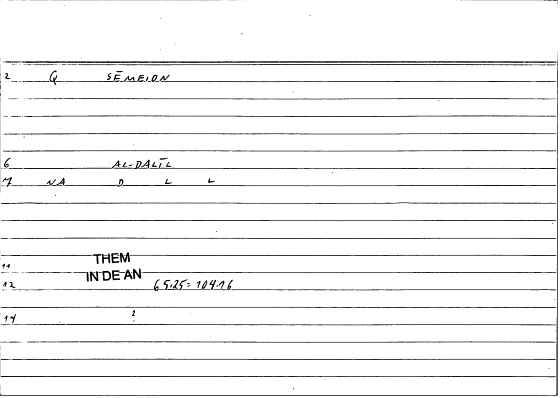 2 Q SĒMEION
6 AL-DALĪL
7 NA D L L
11 THEM
IN DE AN
12 65.25= 104.16
14 ?